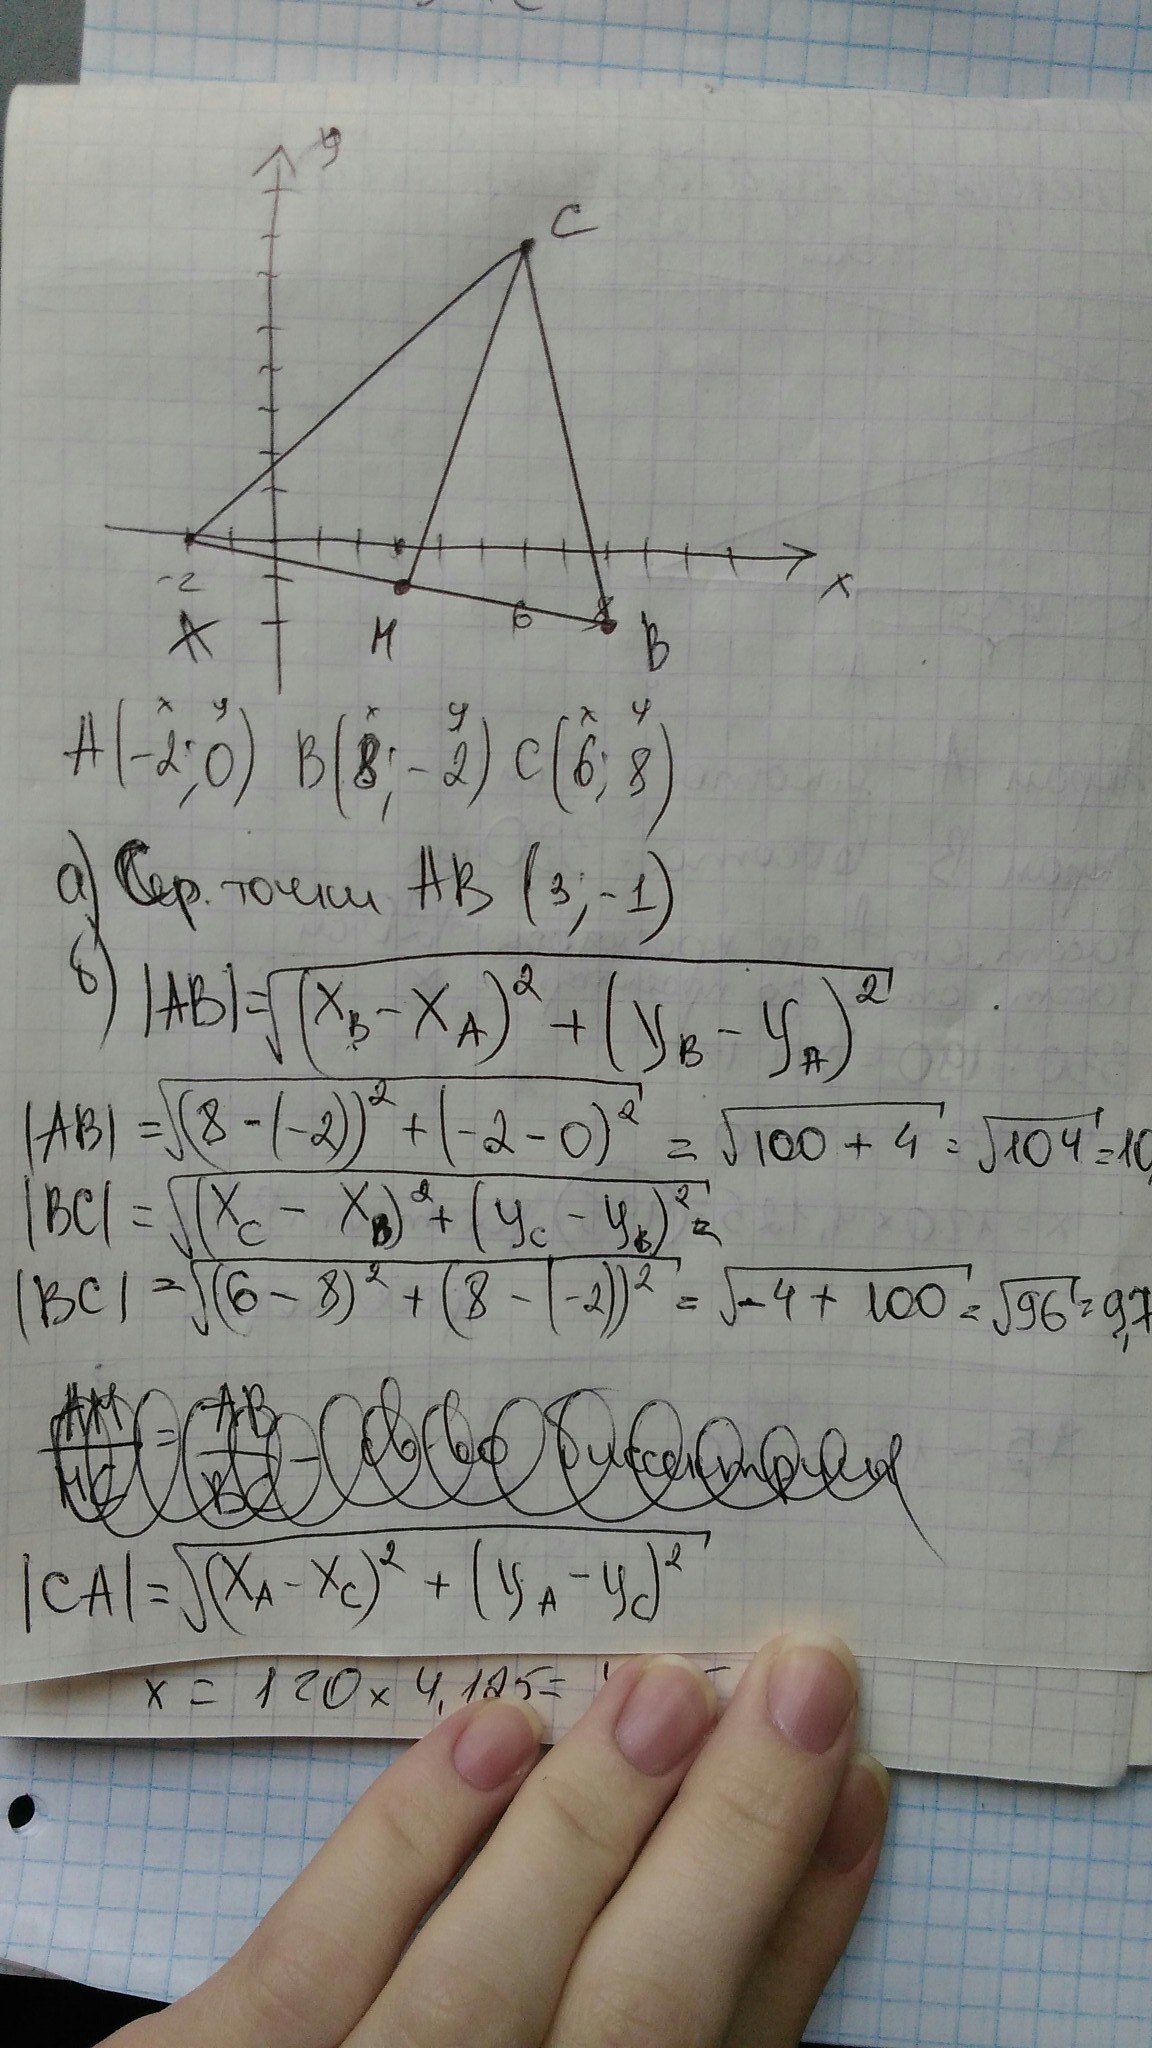 y
C
-2 6 8 x
A M B
x y x y x y
A(-2;0) B(8;-2) C(6;8)
а) Сер. точки AB (3;-1)
б) |AB|=√(x_B-x_A)²+(y_B-y_A)²
|AB|=√(8-(-2))²+(-2-0)²=√100+4=√104=10,
|BC|=√(x_C-x_B)²+(y_C-y_B)²=
|BC|=√(6-8)²+(8-(-2))²=√-4+100=√96=9,7
AM/MC=AB/BC-
|CA|=√(x_A-x_C)²+(y_A-y_C)²
x=120×4,125=